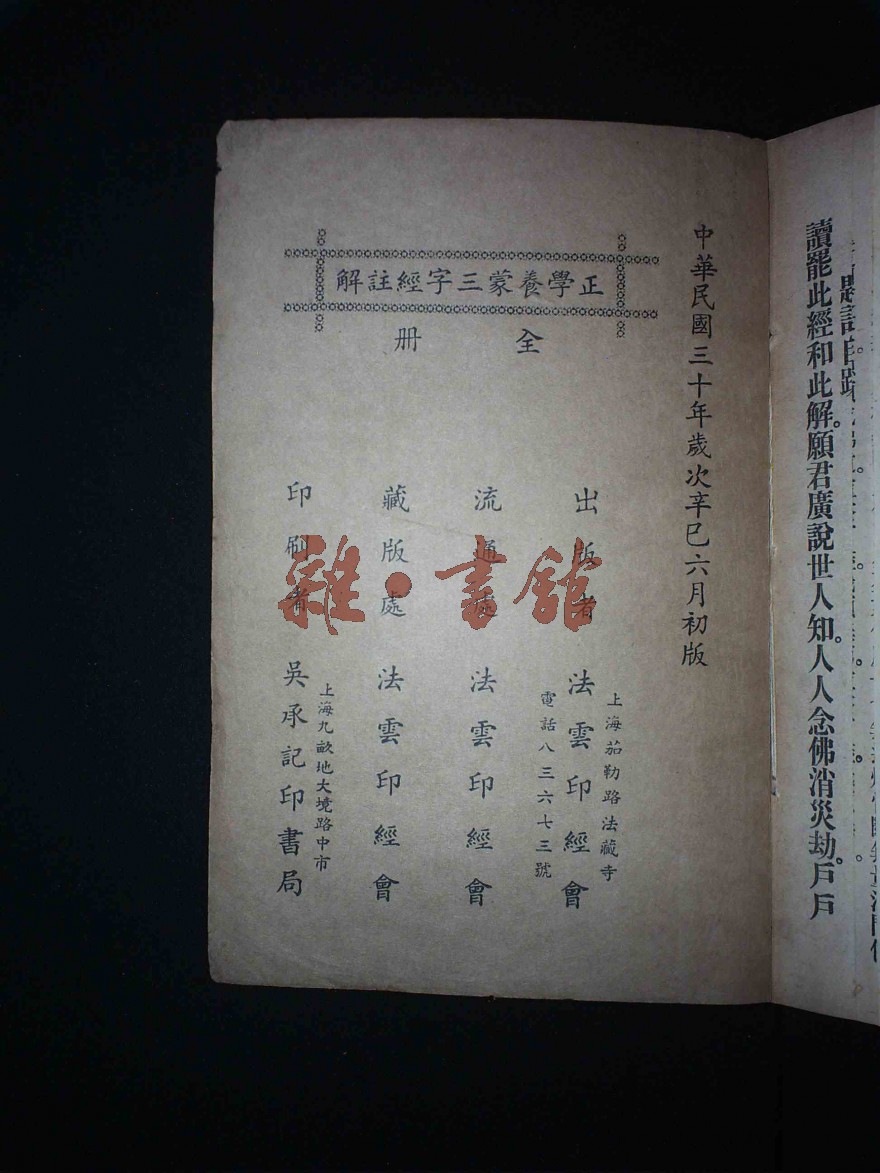 讀罷此經和此解。願君廣說世人知。人人念佛消災劫。戶戶
中華民國三十年歲次辛巳六月初版
正學養蒙三字經註解
全冊
出版者
上海茄勒路法藏寺
法雲印經會
電話八三六七三號
流通處 法雲印經會
藏版處 法雲印經會
印刷者
上海九畝地大境路中市
吳承記印書局
雜·書館